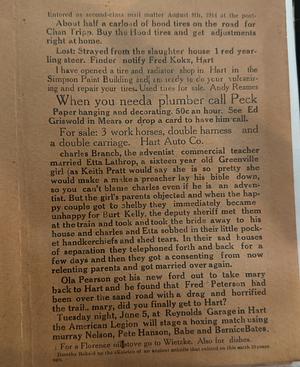 Entered as second-class mail matter August 8th, 1914 at the post-
About half a carload of hood tires on the road for
Chan Tripp. Buy the Hood tires and get adjustments
right at home.
Lost: Strayed from the slaughter house 1 red year-
ling steer. Finder notify Fred Kokx, Hart
I have opened a tire and radiator shop in Hart in the
Simpson Paint Building and am ready to do your vulcaniz-
ing and repair your tires. Used tires for sale. Andy Reames
When you needa plumber call Peck
Paper hanging and decorating. 50c an hour. See Ed
Griswold in Mears or drop a card to have him call.
For sale: 3 work horses, double harness and
a double carriage. Hart Auto Co.
charles Branch, the adventist commercial teacher
married Etta Lathrop, a sixteen year old Greenville
girl (as Keith Pratt would say she is so pretty she
would make a make a preacher lay his bible down,
so you can't blame charles even if he is an adven-
tist. But the girl's parents objected and when the hap-
py couple got to Shelby they immediately became
unhappy for Burt Kelly, the deputy sheriff met them
at the train and took and took the bride away to his
house and charles and Etta sobbed in their little pock-
et handkerchiefs and shed tears. In their sad houses
of separation they telephoned forth and back for a
few days and then they got a consenting from now
relenting parents and got married over again.
Ola Pearson got his new ford out to take mary
back to Hart and he found that Fred Peterson had
been over the sand road with a drag and horrified
the trail. mary, did you finally get to Hart?
Tuesday night, June 5, at Reynolds Garage in Hart
the American Legion will stage a boxing match using
murray Nelson, Pete Hanson, Babe and Bernice Bates.
For a Florence oil stove go to Wietzke. Also for dishes.